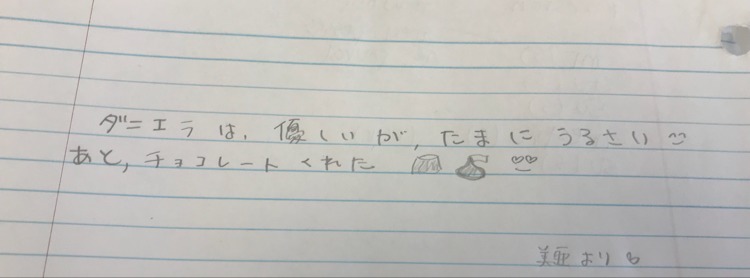 ダニエラは、優しいが、たまにうるさい
あと、チョコレートくれた
美亜より